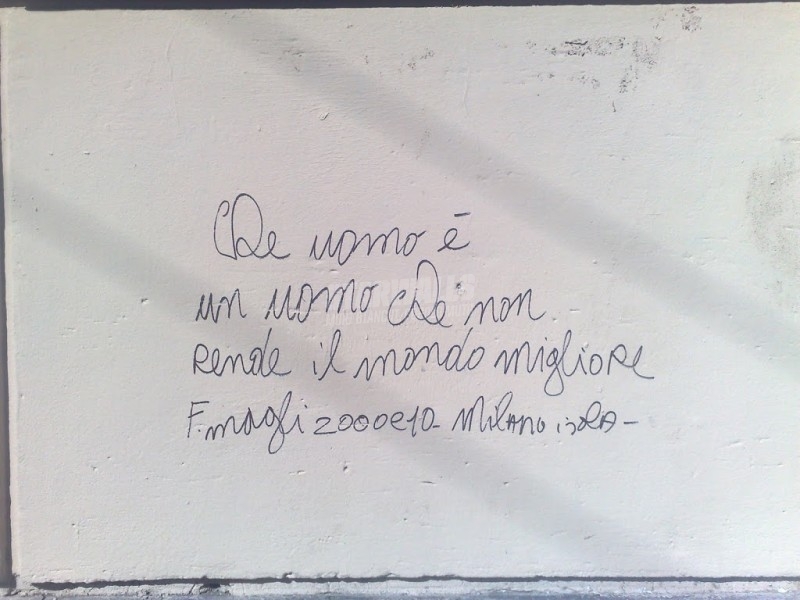 Che uomo è
un uomo che non
rende il mondo migliore
F. magli 2000e10- Milano isola-